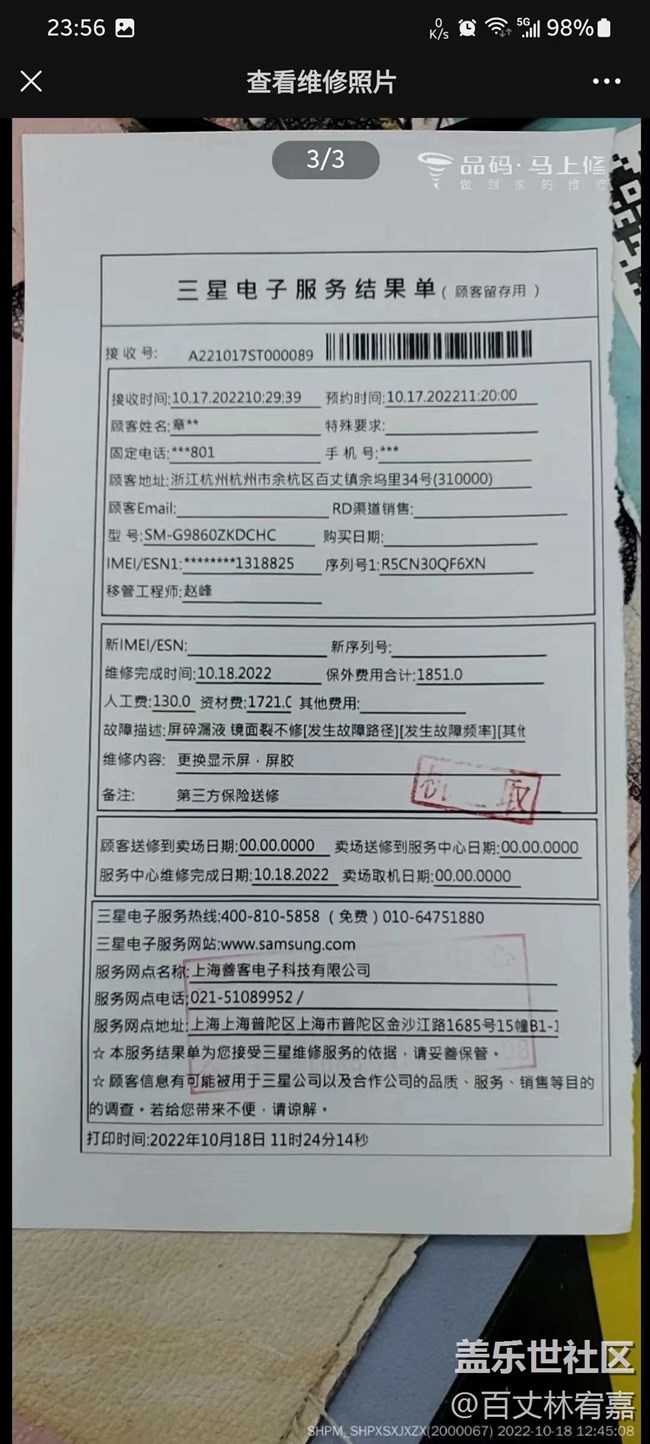 23:56
0 K/s 5G 98%
查看维修照片
3/3
品码·马上修
做到家的维修
三星电子服务结果单(顾客留存用)
接收号: A221017ST000089
接收时间:10.17.202210:29:39 预约时间:10.17.202211:20:00
顾客姓名:章** 特殊要求:
固定电话:***801 手机号:***
顾客地址:浙江杭州杭州市余杭区百丈镇余坞里34号(310000)
顾客Email: RD渠道销售:
型号:SM-G9860ZKDCHC 购买日期:
IMEI/ESN1:********1318825 序列号1:R5CN30QF6XN
移管工程师:赵峰
新IMEI/ESN: 新序列号:
维修完成时间:10.18.2022 保外费用合计:1851.0
人工费:130.0 资材费:1721.0 其他费用:
故障描述:屏碎漏液 镜面裂不修[发生故障路径][发生故障频率][其他
维修内容: 更换显示屏·屏胶
备注: 第三方保险送修
取
顾客送修到卖场日期:00.00.0000 卖场送修到服务中心日期:00.00.0000
服务中心维修完成日期:10.18.2022 卖场取机日期:00.00.0000
三星电子服务热线:400-810-5858（免费）010-64751880
三星电子服务网站:www.samsung.com
服务网点名称:上海普客电子科技有限公司
服务网点电话:021-51089952 /
服务网点地址:上海上海普陀区上海市普陀区金沙江路1685号15幢B1-1
☆ 本服务结果单为您接受三星维修服务的依据，请妥善保管。
☆ 顾客信息有可能被用于三星公司以及合作公司的品质、服务、销售等目的
的调查。若给您带来不便，请谅解。
打印时间:2022年10月18日 11时24分14秒
盖乐世社区
@百丈林宥嘉
SHPM_SHPXSXJXZX(2000067) 2022-10-18 12:45:08